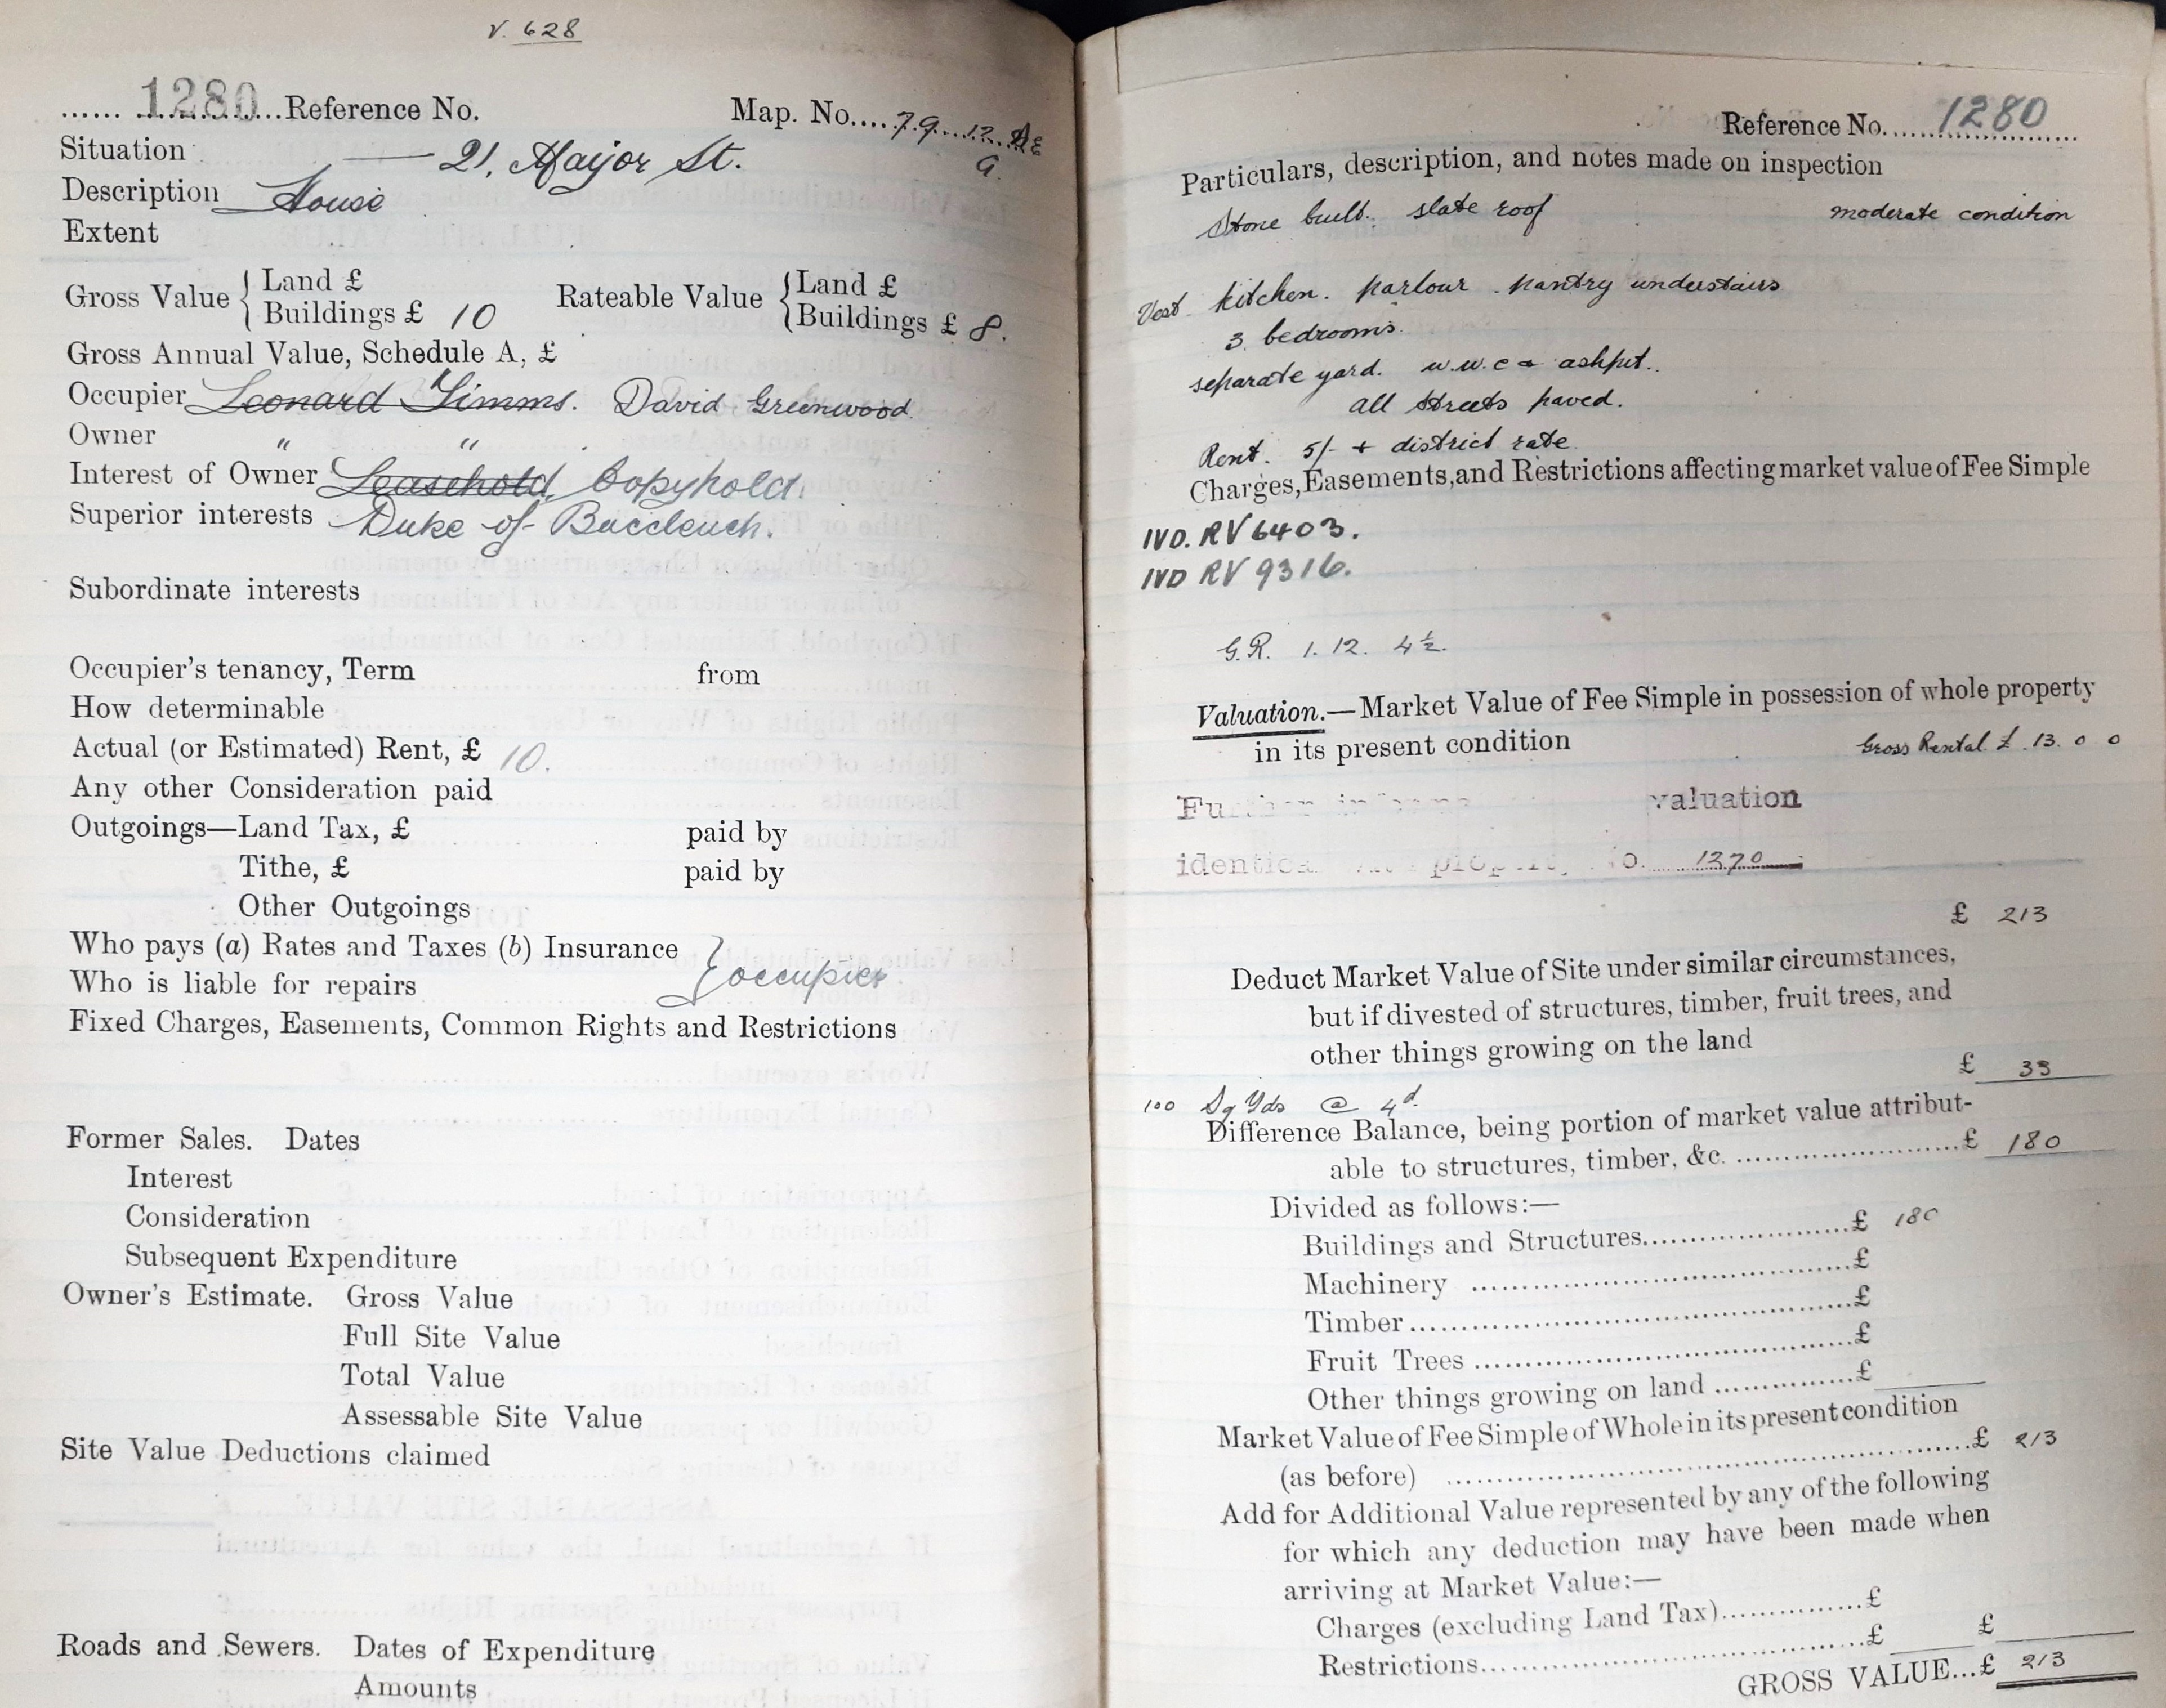 V. 628
1280 Reference No. Map. No. 79. 12.
Situation — 21, Major St. a.
Description House
Extent
Gross Value { Land £ Rateable Value { Land £
Buildings £ 10 Buildings £ 8.
Gross Annual Value, Schedule A, £
Occupier Leonard Timms. David Greenwood.
Owner " "
Interest of Owner Leasehold, Copyhold.
Superior interests Duke of Buccleuch.
Subordinate interests
Occupier's tenancy, Term from
How determinable
Actual (or Estimated) Rent, £ 10.
Any other Consideration paid
Outgoings—Land Tax, £ paid by
Tithe, £ paid by
Other Outgoings
Who pays (a) Rates and Taxes (b) Insurance } occupier
Who is liable for repairs
Fixed Charges, Easements, Common Rights and Restrictions
Former Sales. Dates
Interest
Consideration
Subsequent Expenditure
Owner's Estimate. Gross Value
Full Site Value
Total Value
Assessable Site Value
Site Value Deductions claimed
Roads and Sewers. Dates of Expenditure
Amounts
Reference No. 1280
Particulars, description, and notes made on inspection
Stone built. slate roof moderate condition
Vest. kitchen. parlour. pantry understairs
3 bedrooms.
separate yard. w.w.c & ashpit..
all streets paved.
Rent. 5/- + district rate.
Charges, Easements, and Restrictions affecting market value of Fee Simple
IVD. RV 6403.
IVD RV 9316.
G.R. 1. 12. 4½.
Valuation.—Market Value of Fee Simple in possession of whole property
in its present condition Gross Rental £ 13. 0 0
Further valuation
identical property No. 1270
£ 213
Deduct Market Value of Site under similar circumstances,
but if divested of structures, timber, fruit trees, and
other things growing on the land
£ 33
100 Sq Yds @ 4d.
Difference Balance, being portion of market value attribut-
able to structures, timber, &c. £ 180
Divided as follows:—
Buildings and Structures £ 180
Machinery £
Timber £
Fruit Trees £
Other things growing on land £
Market Value of Fee Simple of Whole in its present condition
(as before) £ 213
Add for Additional Value represented by any of the following
for which any deduction may have been made when
arriving at Market Value:—
Charges (excluding Land Tax) £
Restrictions £ £
GROSS VALUE... £ 213